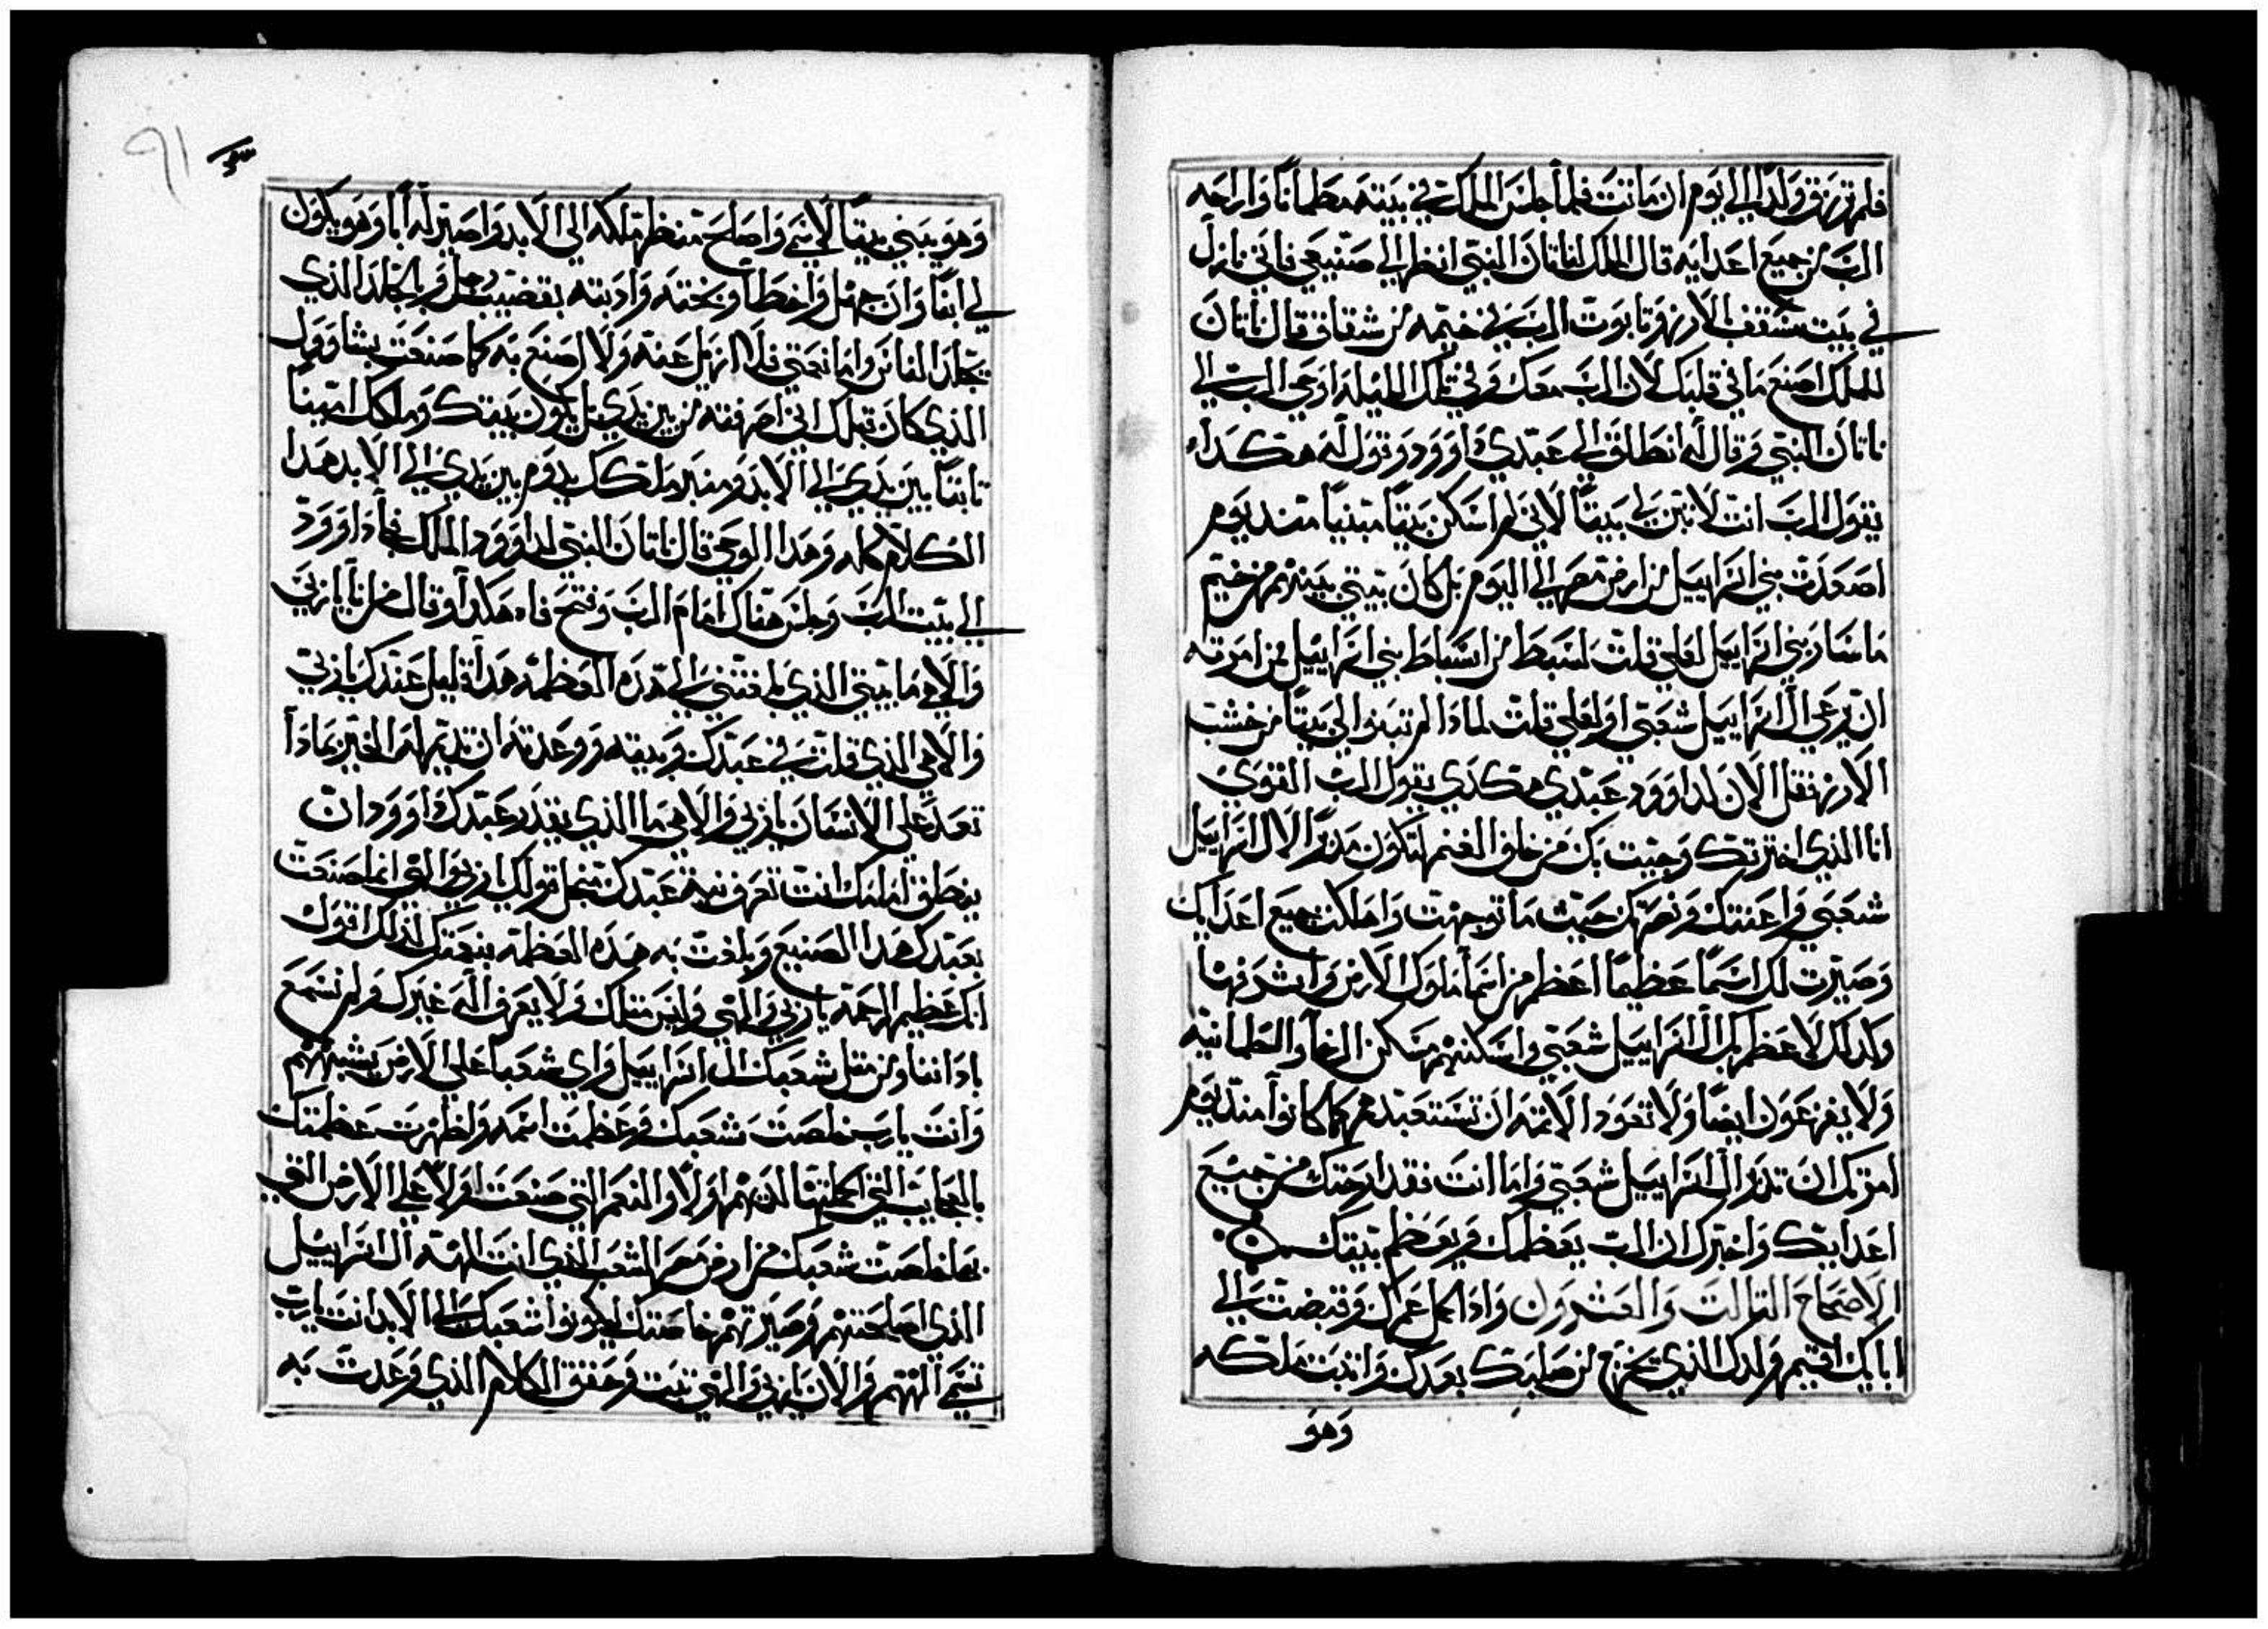 فلم ترزق ولدًا الي يوم ان ماتت فلما جلس الملك في بيته مطمانًا واراحه
الرب من جميع اعدايه قال الملك لناتان النبي انظر الي صنيعي فاني نازل
في بيت مسقف الارز وتابوت الرب في خيمه من شقاق فقال ناتان
للملك اصنع ما في قلبك لان الرب معك وفي تلك الليله اوحي الرب الي
ناتان النبي وقال له انطلق الي عبدي داوود وقول له هكداء
يقول الرب انت لا تبن لي بيتًا لاني لم اسكن بيتًا مبنيًا منديوم
اصعدت بني اسراييل من ارض مصر الي اليوم بل كان بيتي بينهم من خيم
ما سار بني اسراييل لعلي قلت لسبط من اسباط بني اسراييل من امرته
ان يرعي ال اسراييل شعبي او لعلي قلت لمادا لم تبنوا لي بيتًا من خشب
الارز فقل الان لداوود عبدي هكدي يقول الرب القوي
انا الذي اخترتك وجيت بك من خلف الغنم لتكون مدبرًا لال اسراييل
شعبي واعنتك ونصرتك حيث ما توجهت واهلكت جميع اعدايك
وصيرت لك اسمًا عظيمًا اعظم من اسما ملوك الارض واشرفها
وكدلك لاعظم بك ال اسراييل شعبي واسكنهم مسكن الرخا والطمانيه
ولا يفزعون ايضًا ولا تعود الاتمه ان تستعبدهم كما كانوا منديوم
امرتك ان تدبر ال اسراييل شعبي واما انت فقد ارحتك من جميع
اعدايك واخبرك ان الرب يعظمك ويعظم بيتك
الاصحاح التالت والعشرون وادا كمل عمرك وقبضت الي
ابايك اقيم ولدك الذي يخرج من صلبك بعدك واتبت ملكه
وهو
٩١
وهو يبني بيتًا لاسمي واصلح منظر ملكه الي الابد واصير له ابًا وهو يكون
لي ابنًا وان جهل واخطا وبخته وادبته بقضيب رجل وبالجلد الذي
يجلد الناس واما نعمتي فلا ازيل عنه ولا اصنع به كما صنعت بشاوول
الذي كان قبلك اني اصرفته من بين يدي بل يكون بيتك وملكك امينًا
تابتًا بين يدي الي الابد ومنبر ملكك يدوم بين يدي الي الابد هدا
الكلام كله وهدا الوحي قال ناتان النبي لداوود الملك فجاء داوود
الي بيت الرب وجلس هناك امام الرب وفتح فاه هكدا وقال من انا يا ربي
والاهي ما بيتي الذي بلغتني الي هده العظمه هدا قليل عندك يا ربي
والاهي الذي قلت في عبدك وبيته ووعدته ان تديم له الخير بمادا
تعد علي الانسان يا ربي والاهي ما الذي يقدر عبدك داوود ان
ينطق امامك انت تعرف نية عبدك من اجل قولك يا ربي والهي انما صنعت
بعبدك هدا الصنيع وبلغت به هده العظمه بنعمتك لذلك اقول
انك عظيم الرحمه يا ربي والهي وليس متلك ولا يعرف اله غيرك ولم نسمع
باداننا ومن متل شعبك ال اسراييل واي شعبًا علي الارض يشبههم
وانت يا رب خلصت شعبك وعظمت اسمه واظهرت عظمتك
بالعجايب التي اكملتها لديهم اولا والنعم التي صنعت اولا علي الارض التي
بها خلصت شعبك من ارض مصر الشعب الذي انت الهه ال اسراييل
الذي اصلحتهم وصيرتهم خاصتك ليكونوا شعبك الي الابد انت يا رب
تسمي الههم والان يا ربي والهي تبت وحقق الكلام الذي وعدت به